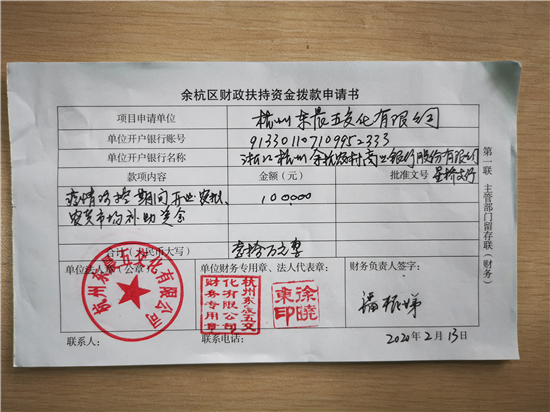 余杭区财政扶持资金拨款申请书
项目申请单位 杭州东晨五交化有限公司
单位开户银行账号 913301107109952333
单位开户银行名称 浙江杭州余杭农村商业银行股份有限公司
星桥支行
款项内容 金额（元） 批准文号
疫情防控期间开业农批、 100000
农贸市场补助资金
合计（人民币大写） 壹拾万元整
单位法人章（公章） 单位财务专用章、法人代表章： 财务负责人签字：
杭州东晨五交化有限公司
杭州东晨五交
化有限公司
财务专用章
徐晓
东印
联系人： 联系电话： 2020年2月13日
第一联 主管部门留存联（财务）